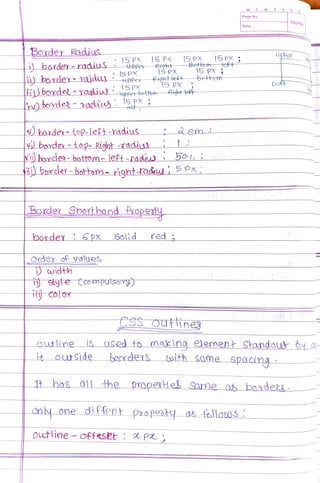 M T W T F S S
Page No.
Date:
YOUVA
Border Radius
i) border-radius : 15px 15px 15px 15px ;
upper Right Bottom left
ii) border-raidus : 15px 15px 15px ;
upper Right left bottom
iii) border-radius : 15px 15px ;
upper bottom Right left
iv) border-radius : 15px ;
all
upper
left
v) border-top-left-radius : 2em ;
vi) border-top-Right-radius : 1 ;
vii) border-bottom-left-radius : 50% ;
viii) border-bottom-right-radius : 5px ;
Border Shorthand Property
border : 6px solid red ;
Order of values
i) width
ii) style (compulsory)
iii) color
CSS outlines
outline is used to making element standout by
it outside borders with some spacing.
It has all the properties same as borders.
only one diffent property as follows :
outline-offset : xpx ;